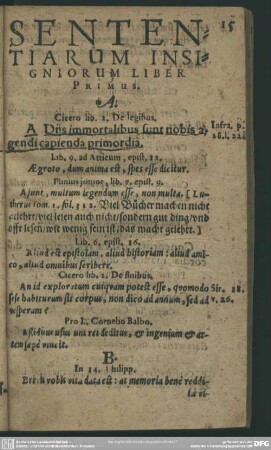 15
SENTEN=
TIARUM INSI=
GNIORUM LIBER
PRIMUS.
A.
Cicero lib. 2. De legibus.
A Diis immortalibus sunt nobis a= Infra. p.
gendi capienda primordia. 28. l. 22.
Lib. 9. ad Atticum, epist. 11.
Ægroto, dum anima est, spes esse dicitur.
Plinius junior, lib. 7. epist. 9.
Ajunt, multum legendum esse, non multa. [Lu=
therus tom. 1. fol. 312. Viel Bücher machen nicht
gelehrt/ viel lesen auch nicht/ sondern gut ding/ und
offt lesen/ wie wenig sein ist/ das macht gelehrt.]
Lib. 6. epist. 16.
Aliud est epistolam, aliud historiam: aliud ami=
co, aliud omnibus scribere.
Cicero lib. 2. De finibus.
An id exploratum cuiquam potest esse, quomodo Sir. 18.
sese habiturum sit corpus, non dico ad annum, sed ad v. 26.
vesperam?
Pro L. Cornelio Balbo.
Assiduus usus uni rei deditus, & ingenium & ar=
tem sæpe vincit.
B.
In 14. Philipp.
Brevis vobis vita data est: at memoria bene reddi=
ta vi-